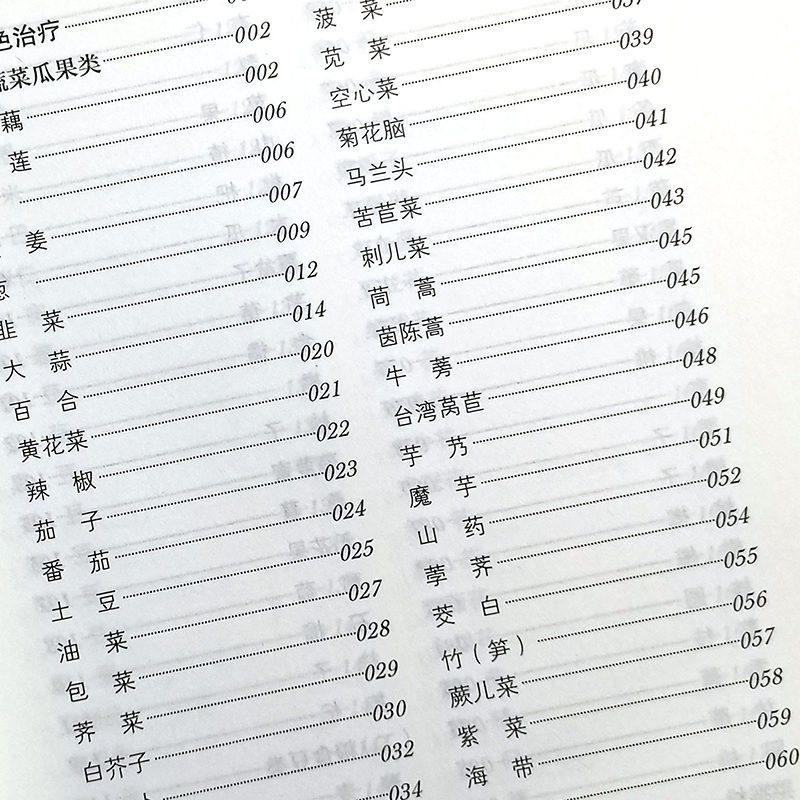 色治疗
菜瓜果类 002
藕 002
莲 006
006
姜 007
009
韭 菜 012
大 蒜 014
百 合 020
黄花菜 021
辣 椒 022
茄 子 023
番 茄 024
土 豆 025
油 菜 027
包 菜 028
荠 菜 029
白芥子 030
032
034
菠 菜
苋 菜 037
空心菜 039
菊花脑 040
马兰头 041
苦苣菜 042
刺儿菜 043
茼 蒿 045
茵陈蒿 045
牛 蒡 046
台湾莴苣 048
芋 艿 049
魔 芋 051
山 药 052
荸 荠 054
茭 白 055
竹（笋） 056
蕨儿菜 057
紫 菜 058
海 带 059
060